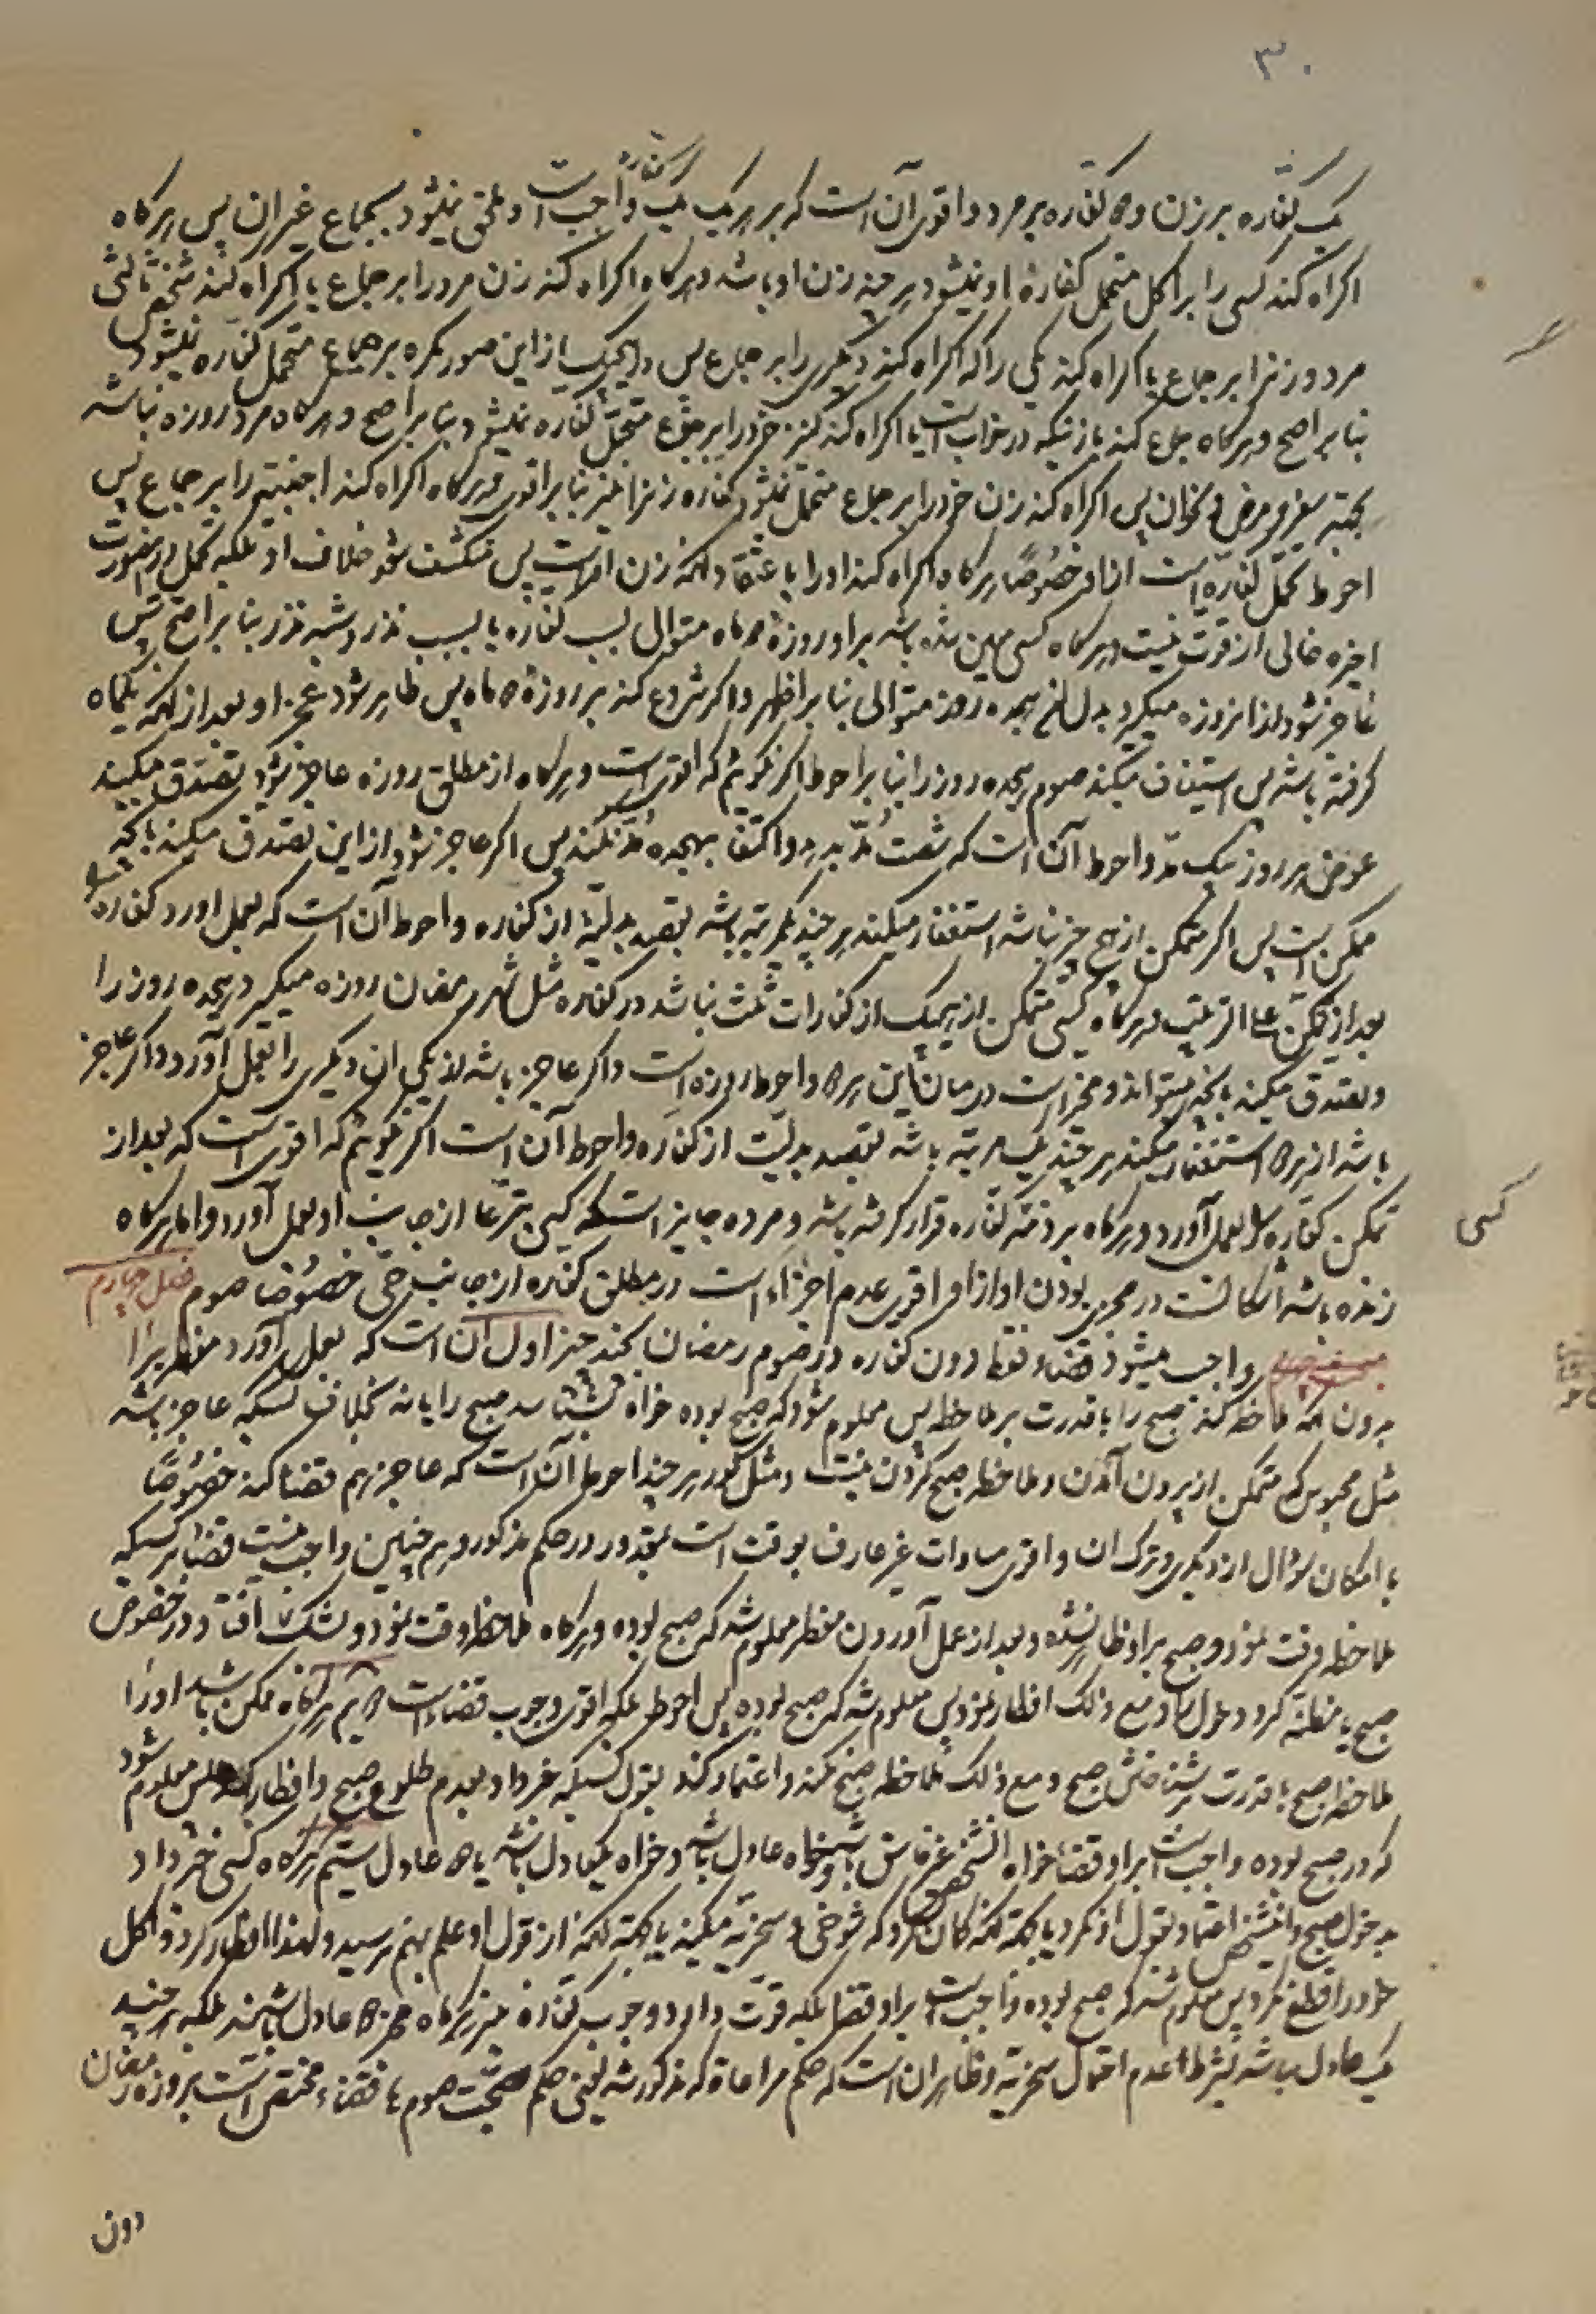 ۳۰
یک کفاره بر زن و دو کفاره بر مرد و اقوی آن است که بر هر یک یک کفاره واجب است و ملحق نمیشود بجماع غیر ان پس هرکاه
اکراه کند کسی را بر اکل متحمل کفارهٔ او نمیشود هر چند زن او باشد و هرکاه اکراه کند زن مرد را بر جماع یا اکراه کند شخص ثالثی
مرد و زنرا بر جماع یا اکراه کند یکی را که اکراه کند دیکری را بر جماع پس در هیچیک از این صور مکره بر جماع متحمل کفاره نمیشود
بنا بر اصح و هرکاه جماع کند با زنیکه در خوابست یا اکراه کند کنیز خود را بر جماع متحمل کفاره نمیشود بنا بر اصح و هرکاه مرد روزه نباشد
بجهة سفر و مرض و نحو ان پس اکراه کند زن خود را بر جماع متحمل نمیشود کفاره زنرا نیز بنا بر اقوی و هرکاه اکراه کند اجنبیه را بر جماع پس
احوط تحمل کفاره است از او خصوصًا هرکاه اکراه کند او را باعتقاد انکه زن اوست پس منکشف شود خلاف او بلکه تحمل در صورت
اخیره خالی از قوت نیست و هرکاه کسی معین شده باشد بر او روزهٔ دو ماه متوالی بسبب کفاره یا بسبب نذر و شبه نذر بنا بر اصح پس
عاجز شود از ان روزه میکیرد بدل ان هیجده روز متوالی بنا بر اظهر و اکر شروع کند بر روزهٔ دو ماه پس ظاهر شود عجز او بعد از انکه یکماه
کرفته باشد پس استیناف میکند صوم هیجده روز را بنا بر احوط اکر نکوئیم که اقوی است و هرکاه از مطلق روزه عاجز شود تصدق میکند
عوض هر روز بیک مد و احوط آن است که شصت مدّ بدهد و اکتفا بهیجده مدّ نکند پس اکر عاجز شود از این تصدق میکند بانچه
ممکن است پس اکر متمکن از هیچ چیز نباشد استغفار میکند هر چند یکمرتبه باشد بقصد بدلیّة از کفاره و احوط آن است که بعمل اورد کفاره را
بعد از تمکن علی الترتیب و هرکاه کسی متمکن از هیچیک از کفارات ثلث نباشد در کفاره مثل شهر رمضان روزه میکیرد هیجده روز را
و تصدق میکند بانچه میتواند و مخیر است در میان این هر دو و احوط روزه است و اکر عاجز باشد از یکی ان دیکری را بعمل آورد و اکر عاجز
باشد از هر دو استغفار میکند هر چند یک مرتبه باشد بقصد بدلیّت از کفاره و احوط آن است اکر نکوئیم که اقوی است که بعد از
تمکن کفاره را بعمل آورد و هرکاه بر ذمّه کفاره قرار کرفته باشد و مرده جایز است که کسی تبرّعا از جانب او بعمل آورد و اما هرکاه
زنده باشد اشکالست در مجزی بودن او از او و اقوی عدم اجزاء است در مطلق کفاره از جانب حی خصوصًا صوم فصل چهارم
واجب میشود قضاء فقط دون کفاره در صوم رمضان بچند چیز اول آن است که بعمل آورد مفطر را
بدون انکه ملاحظه کند صبح را با قدرت بر ملاحظه پس معلوم شود که صبح بوده خواه بشناسد صبح را یا نه بخلاف کسیکه عاجز باشد
مثل محبوس که متمکن از بیرون آمدن و ملاحظه صبح کردن نیست و مثل کور هر چند احوط آن است که عاجز هم قضا کند خصوصًا
با امکان سؤال از دیکری و ترک ان و اقوی مساوات غیر عارف بوقت است بمعذور در حکم مذکور و هم چنین واجب نیست قضا بر کسیکه
ملاحظه وقت نمود و صبح بر او ظاهر نشده و بعد از عمل آوردن مفطر معلوم شد که صبح بوده و هرکاه ملاحظه وقت نمود و بشک افتاد در خصوص
صبح یا مظنه کرد دخول را و مع ذلک افطار نمود پس معلوم شد که صبح بوده پس احوط بلکه اقوی وجوب قضاء است دویم هرکاه ممکن باشد او را
ملاحظه صبح با قدرت بشناختن صبح و مع ذلک ملاحظه صبح نکند و اعتماد کند بقول کسیکه خبر داد بعدم طلوع صبح و افطار کند پس معلوم شود
که در صبح بوده واجب است بر او قضا خواه انشخص غیر فاسق باشد و خواه عادل باشد و خواه یکعادل باشد یا دو عادل سیّم هرکاه کسی خبر داد
بدخول صبح و این شخص اعتماد بقول او نکرد یا بجهة انکه کمان کرد که شوخی و سخریّه میکند یا بجهة انکه از قول او علم بهم نرسید و لهذا افطار کرد و اکل
خود را قطع نکرد پس معلوم شد که صبح بوده واجب است بر او قضا بلکه قوت دارد وجوب کفاره نیز هرکاه مخبر دو عادل باشند بلکه هر چند
یک عادل باشد بشرط عدم احتمال سخریّه و ظاهر ان است که حکم مراعاة که مذکور شد یعنی حکم صحّت صوم یا قضاء مختص است بروزه رمضان
دون
کسی